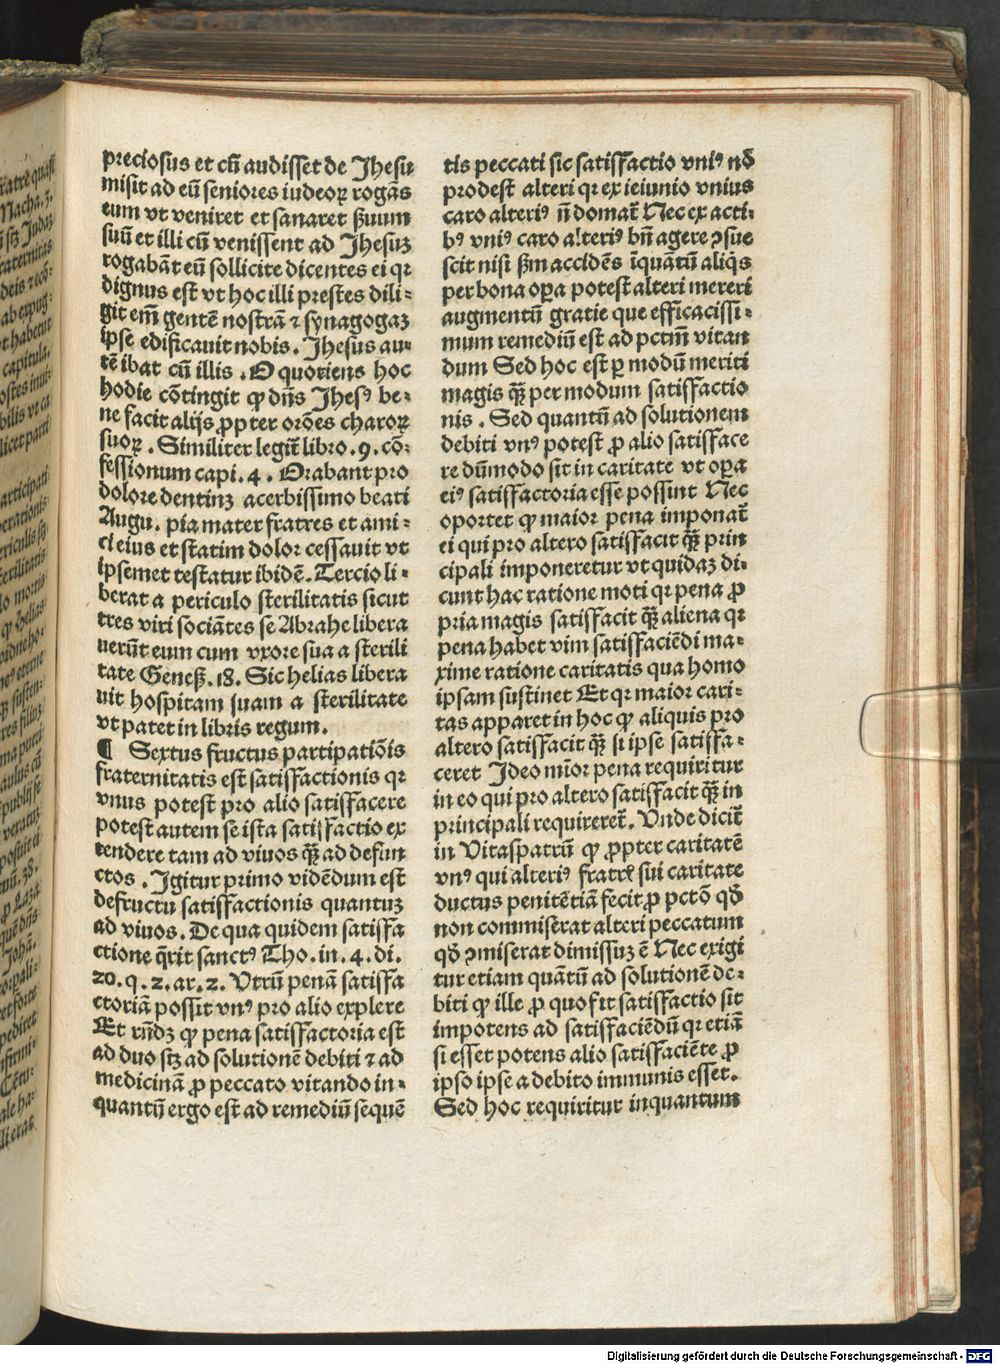 preciosus et cū audisset de Jhesu
misit ad eū seniores iudeoꝝ rogās
eum vt veniret et sanaret ẜuum
suū et illi cū venissent ad Jhesuꝫ
rogabāt eū sollicite dicentes ei qꝛ
dignus est vt hoc illi prestes dili⸗
git em̄ gentē nostrā ⁊ synagogaꝫ
ipse edificauit nobis. Jhesus au⸗
tē ibat cū illis. O quotiens hoc
hodie cōtingit ꝙ dn̄s Jhesꝰ be⸗
ne facit alijs ꝓpter orōes charoꝝ
suoꝝ. Similiter legit̄ libro. 9. cō⸗
fessionum capi. 4. Orabant pro
dolore dentinꝫ acerbissimo beati
Augu. pia mater fratres et ami⸗
ci eius et statim dolor cessauit vt
ipsemet testatur ibidē. Tercio li⸗
berat a periculo sterilitatis sicut
tres viri sociātes se Abrahe libera
uerūt eum cum vxore sua a sterili
tate Geneß. 18. Sic helias libera
uit hospitam suam a sterilitate
vt patet in libris regum.
¶ Sextus fructus partipatiōis
fraternitatis est satisfactionis qꝛ
vnus potest pro alio satisfacere
potest autem se ista satisfactio ex
tendere tam ad viuos q̄ꝫ ad defun
ctos. Igitur primo vidēdum est
defructu satisfactionis quantuꝫ
ad viuos. De qua quidem satisfa
ctione q̄rit sanctꝰ Tho. in. 4. di.
20. q. 2. ar. 2. Vtrū penā satisfa
ctoriā possit vnꝰ pro alio explere
Et rn̄dꝫ ꝙ pena satisfactoria est
ad duo sꝫ ad solutionē debiti ⁊ ad
medicinā ꝓ peccato vitando in⸗
quantū ergo est ad remediū sequē
tis peccati sic satisfactio vniꝰ nō
prodest alteri qꝛ ex ieiunio vnius
caro alteriꝰ n̄ domat̄ Nec ex acti⸗
bꝰ vniꝰ caro alteriꝰ bn̄ agere ꝯsue
scit nisi ẜm accidēs īquātū aliq̄s
per bona oꝑa potest alteri mereri
augmentū gratie que efficacissi⸗
mum remediū est ad pctm̄ vitan
dum Sed hoc est ꝑ modū meriti
magis q̄ꝫ per modum satisfactio
nis. Sed quantū ad solutionem
debiti vnꝰ potest ꝓ alio satisface
re dūmodo sit in caritate vt oꝑa
eiꝰ satisfactoria esse possint Nec
oportet ꝙ maior pena imponat̄
ei qui pro altero satisfacit q̄ꝫ prin
cipali imponeretur vt quidaꝫ di⸗
cunt hac ratione moti qꝛ pena ꝓ
pria magis satisfacit q̄ꝫ aliena qꝛ
pena habet vim satisfaciēdi ma⸗
xime ratione caritatis qua homo
ipsam sustinet Et qꝛ maior cari⸗
tas apparet in hoc ꝙ aliquis pro
altero satisfacit q̄ꝫ si ipse satisfa⸗
ceret Ideo mīor pena requiritur
in eo qui pro altero satisfacit q̄ꝫ in
principali requireret̄. Vnde dicit̄
in Vitaspatrū ꝙ ꝓpter caritatē
vnꝰ qui alteriꝰ fratrꝭ sui caritate
ductus penitētiā fecit ꝓ pctō qd̄
non commiserat alteri peccatum
qd̄ ꝯmiserat dimissuꝫ ē Nec exigi
tur etiam quātū ad solutionē de⸗
biti ꝙ ille ꝓ quo fit satisfactio sit
impotens ad satisfaciēdū qꝛ etiā
si esset potens alio satisfaciēte ꝓ
ipso ipse a debito immunis esset.
Sed hoc requiritur inquantum
Digitalisierung gefördert durch die Deutsche Forschungsgemeinschaft - DFG